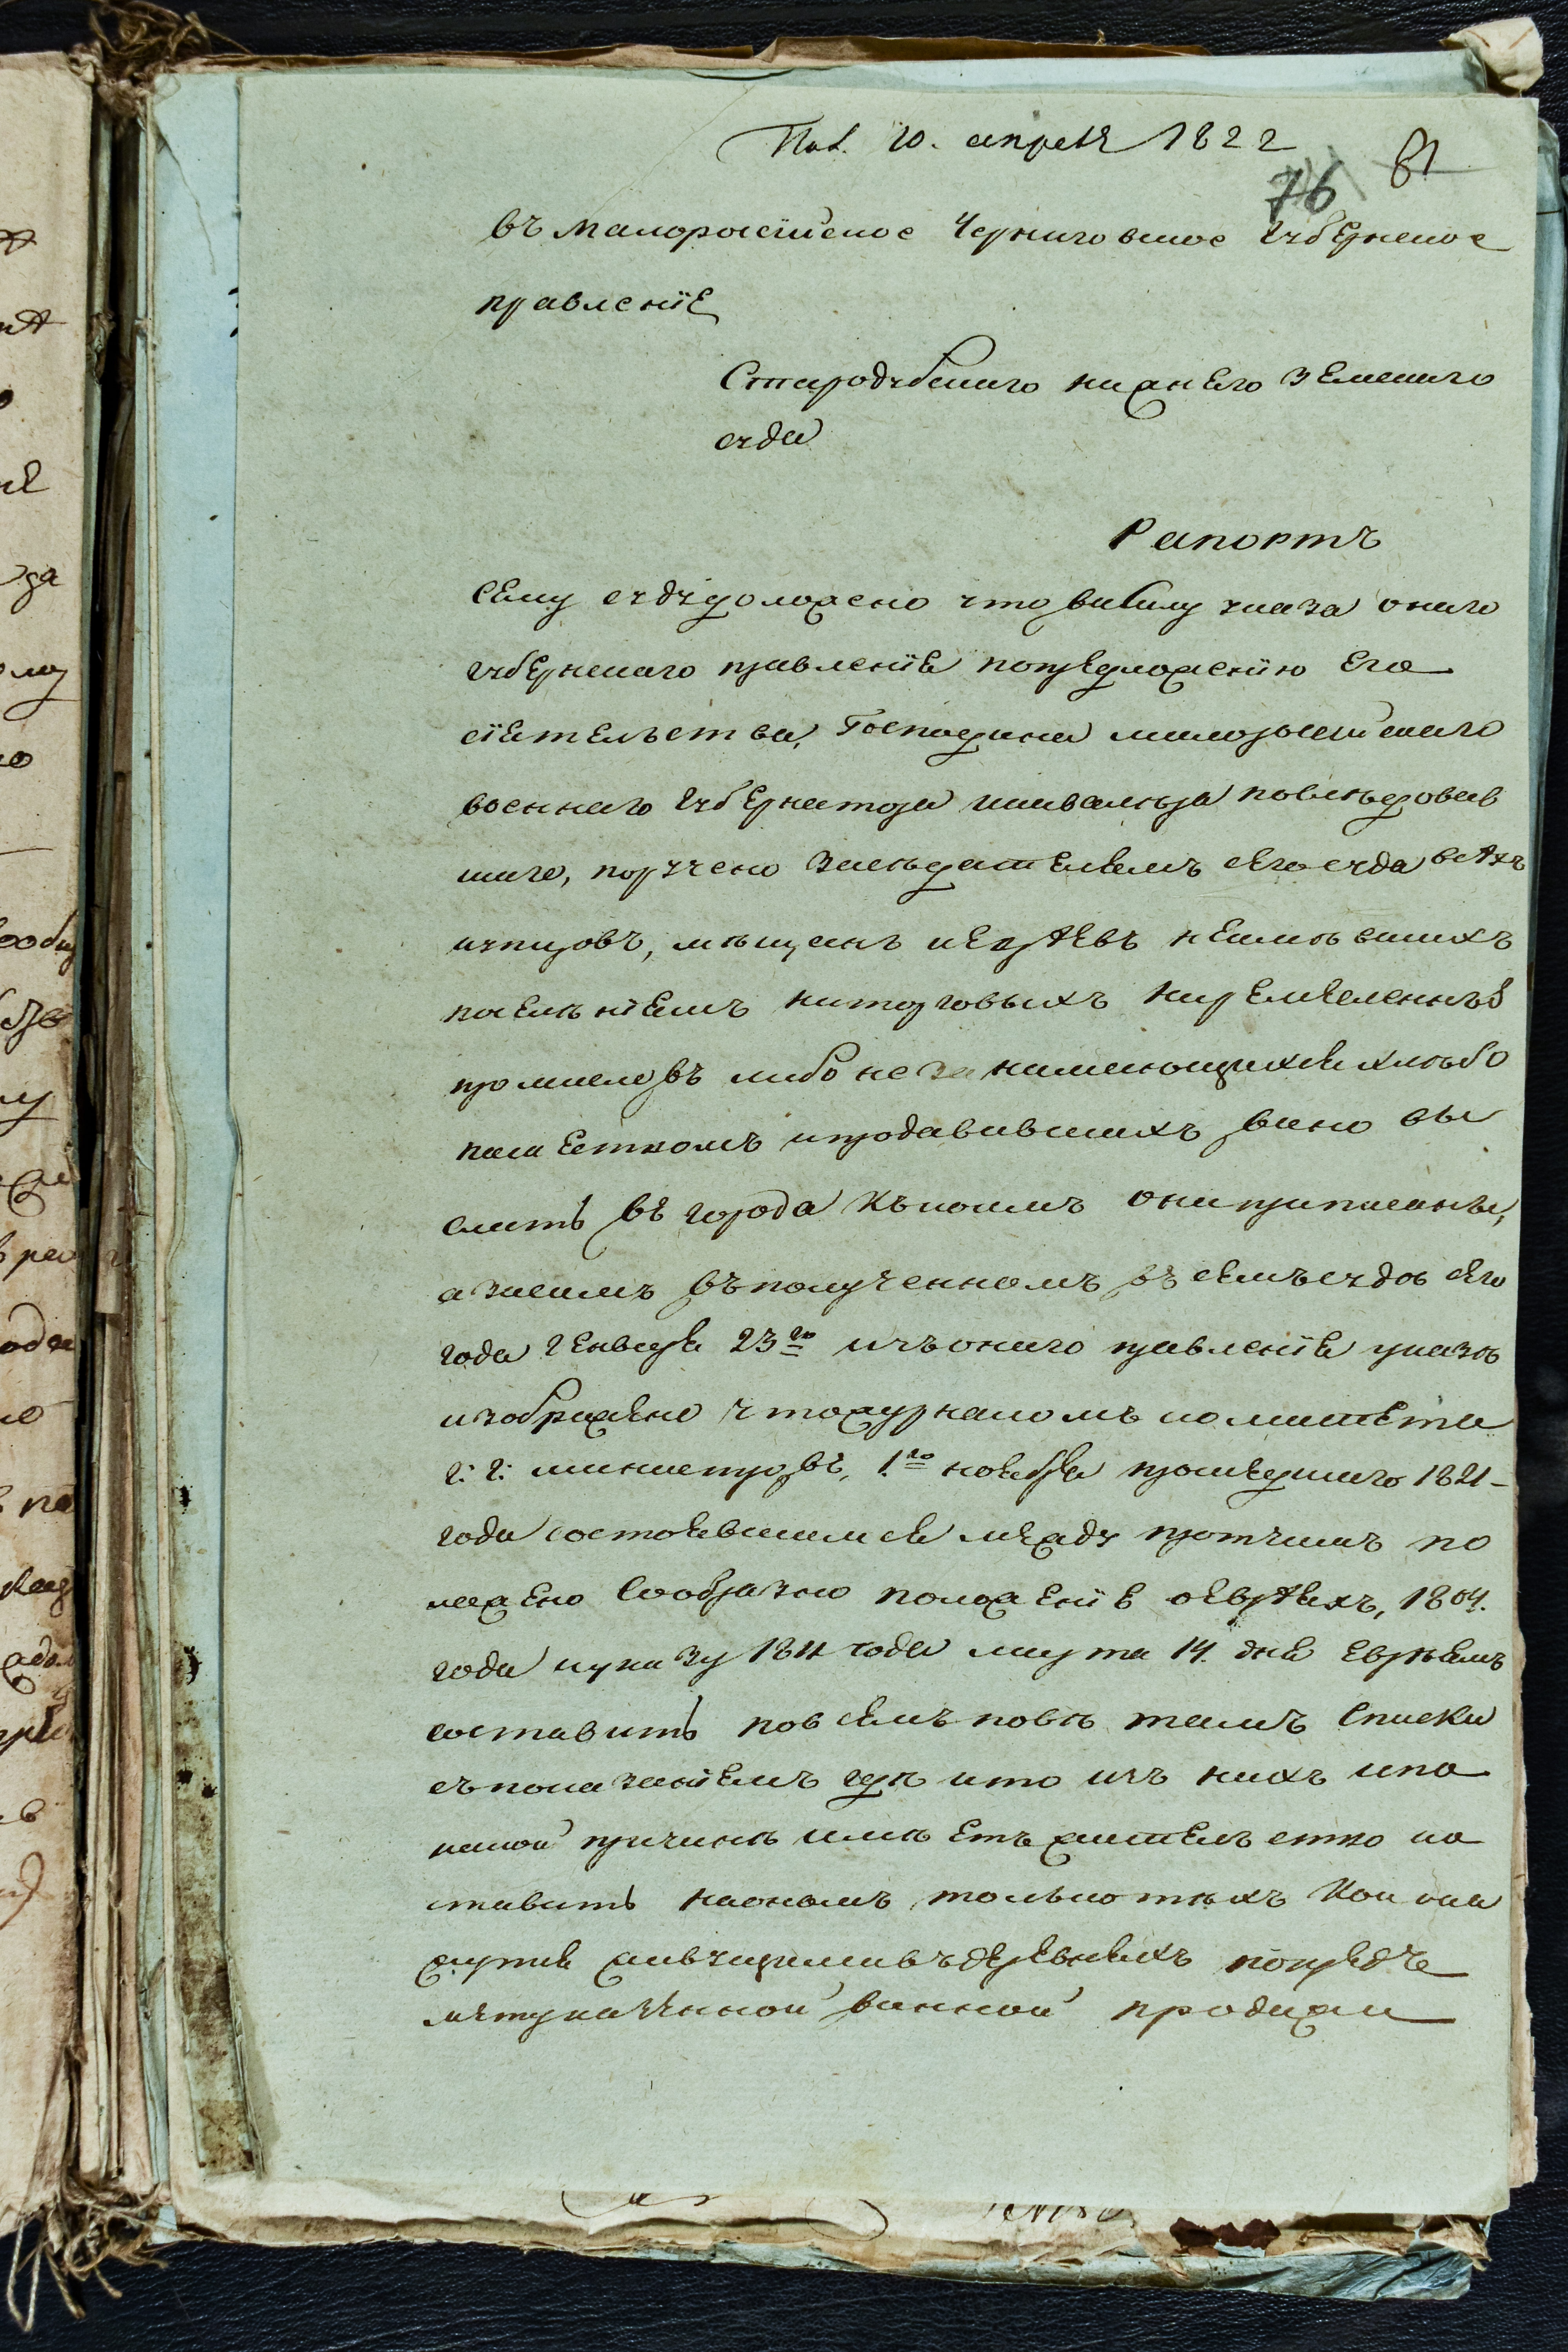 Пол. 10. апреля 1822
76 81
въ малоросiйское Черниговское губернское
правленiе
Стародубскаго нижнего земскаго
суда
Рапортъ
Сему суду доложено что всилу указа онаго
губернскаго правленiя попредложенiю Его
сiятельства, Господина малоросiйскаго
военнаго губернатора последовав
шаго, поручено заседателямъ сего суда всехъ
купцовъ, мещанъ иевреевъ неимевшихъ
поселенiемъ ниторговыхъ ниремесленныхъ
промысловъ либо не занимающихся хлебо
пашествомъ ипродававшихъ вино вы
слать въ города къкоимъ они приписаны,
а засимъ въполученномъ въ семъ суде сего
года генваря 23го изъ онаго правленiя указе
изображено что журналомъ комитета
г: г: министровъ, 1го ноября прошедшаго 1821
года состоявшимся между протчимъ по
ложено Сообразно положенiю оевреяхъ, 1804.
года иуказу 1811 года марта 14. дня евреямъ
составить повсемъ поветамъ Списки
съпоказанiемъ где кто изъ нихъ ипо
какой причине имеетъ жительство и о
ставить наономъ только техъ Кои она
жутся живущими въдеревняхъ попредъ
мету казенной винной продажи